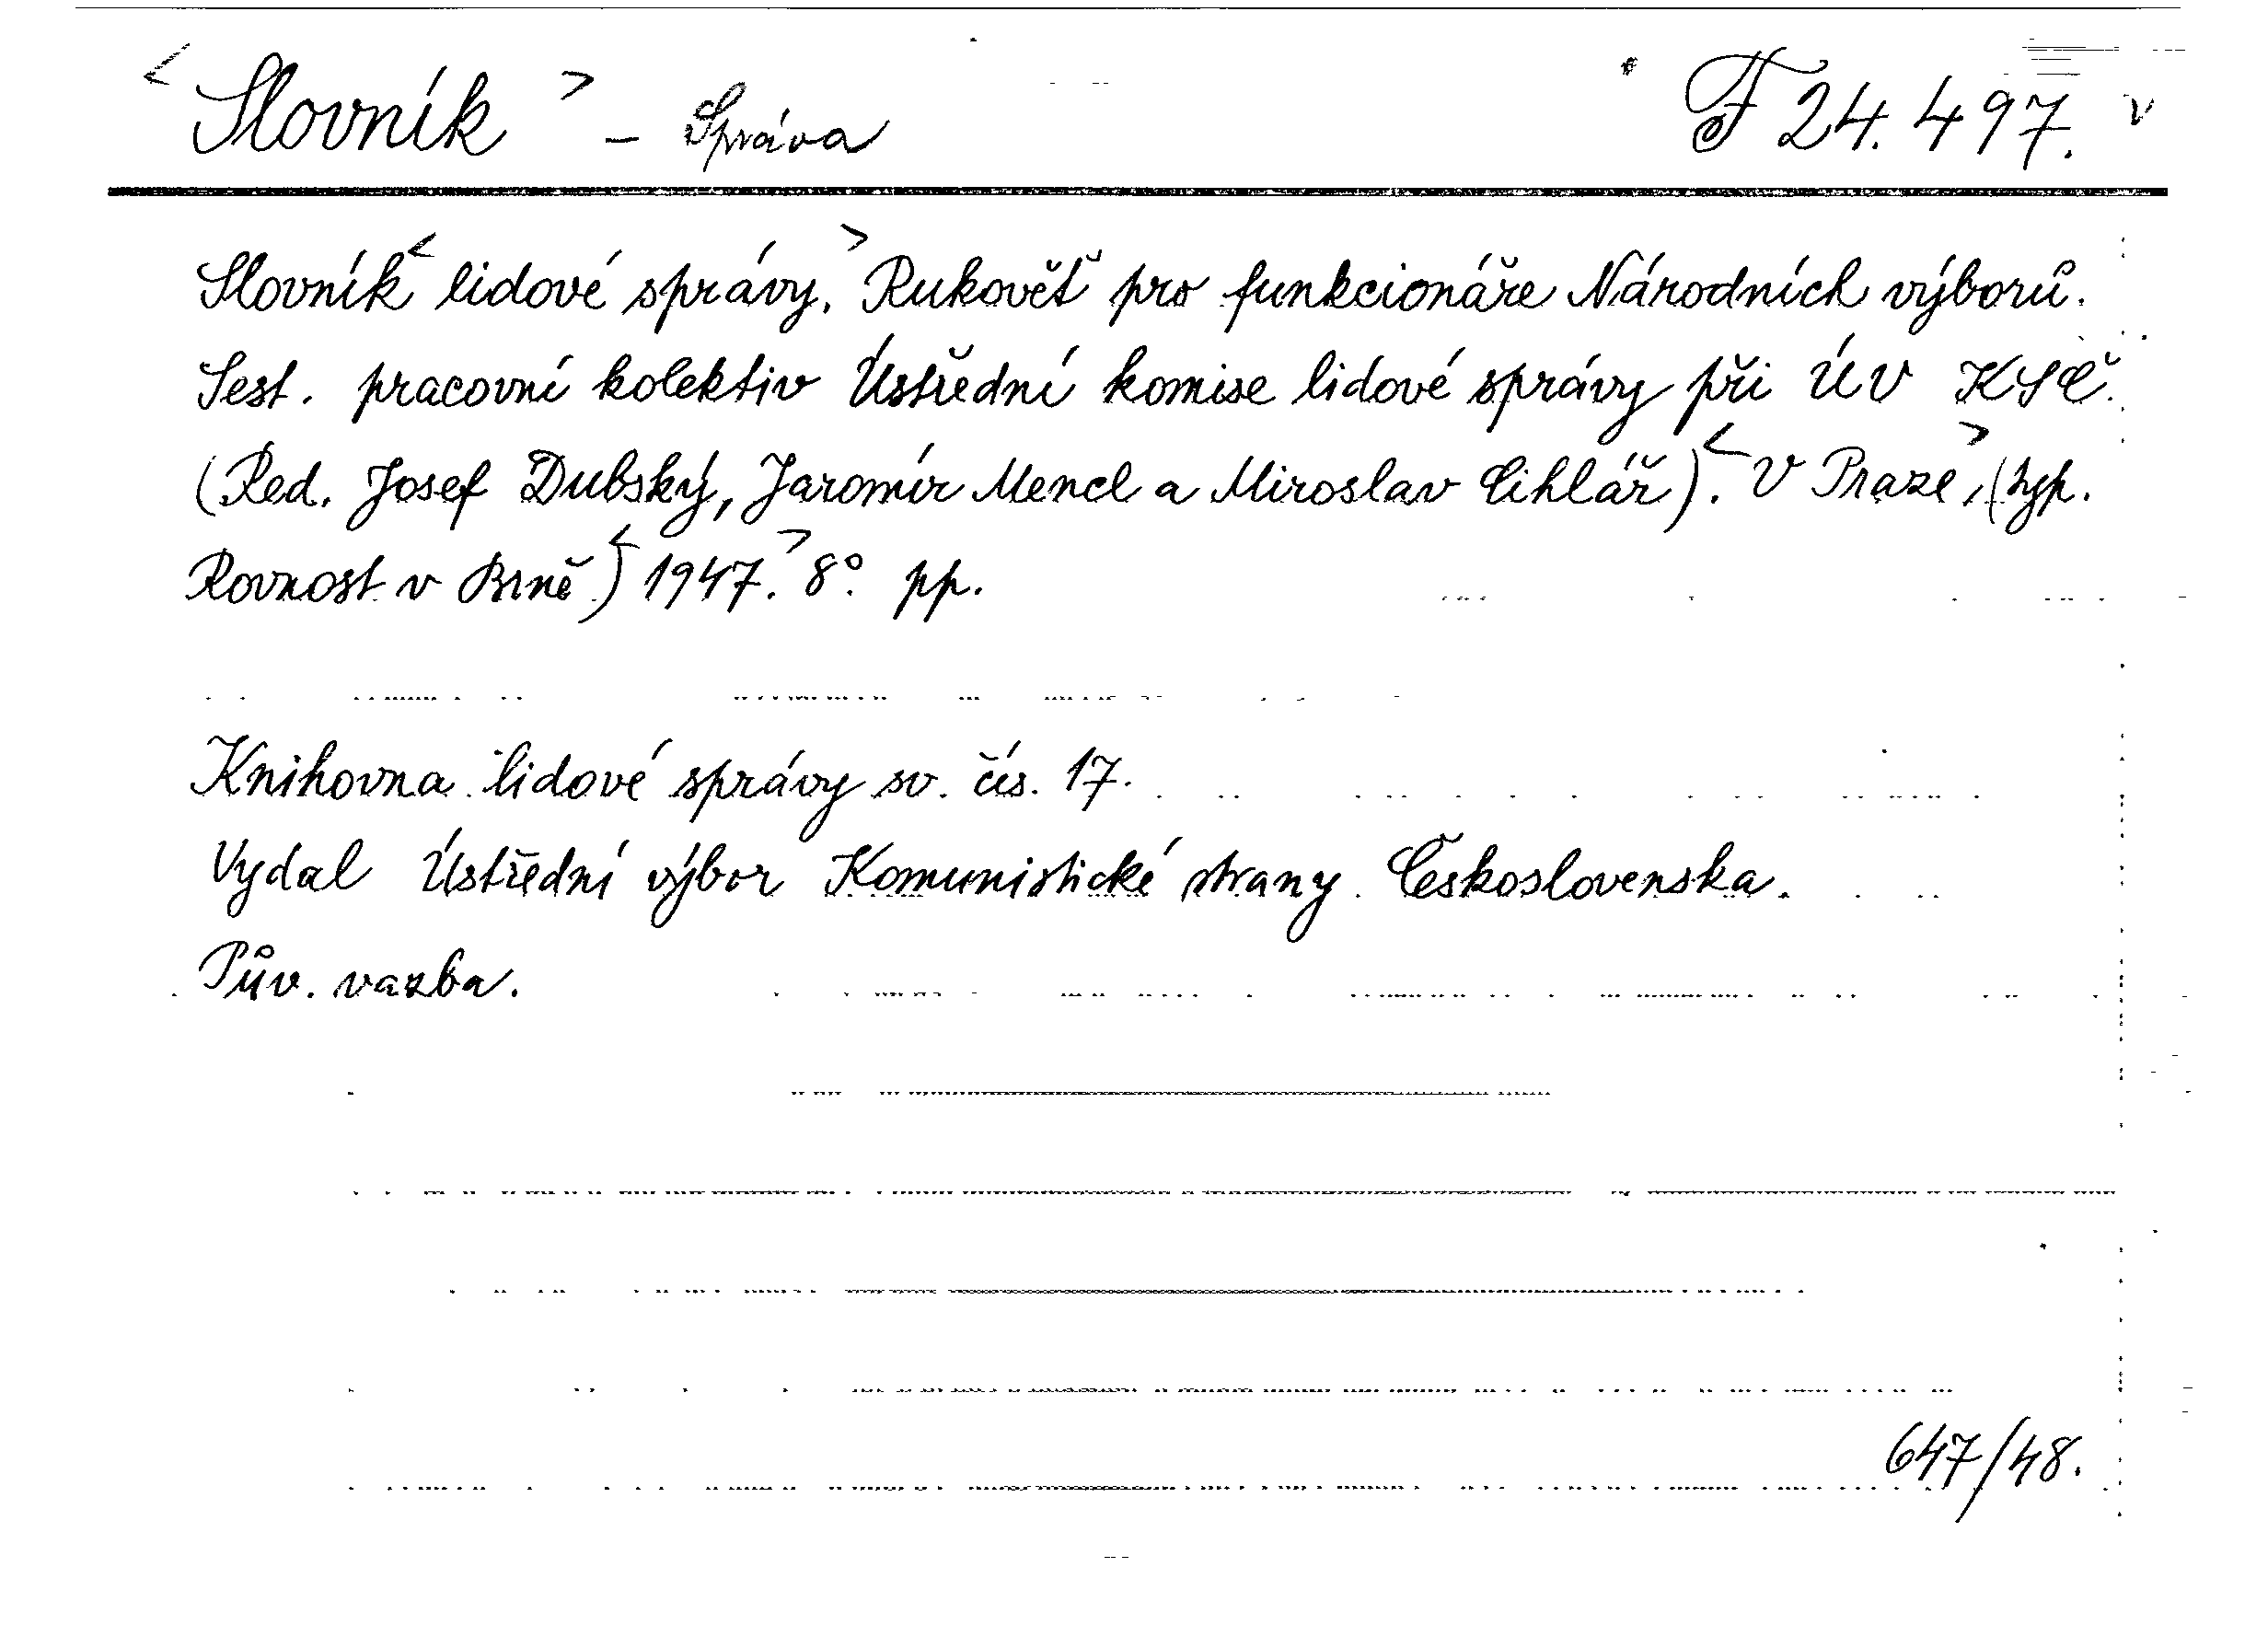 <Slovník> - Správa F 24.497. v
Slovník <lidové správy.> Rukověť pro funkcionáře Národních výborů.
Sest. pracovní kolektiv Ústřední komise lidové správy při ÚV KSČ.
(Red. Josef Dubský, Jaromír Mencl a Miroslav Cihlář). <V Praze,> (typ.
Rovnost v Brně) <1947.> 8°. pp.
Knihovna lidové správy sv. čís. 17.
Vydal Ústřední výbor Komunistické strany Československa.
Pův. vazba.
647/48.